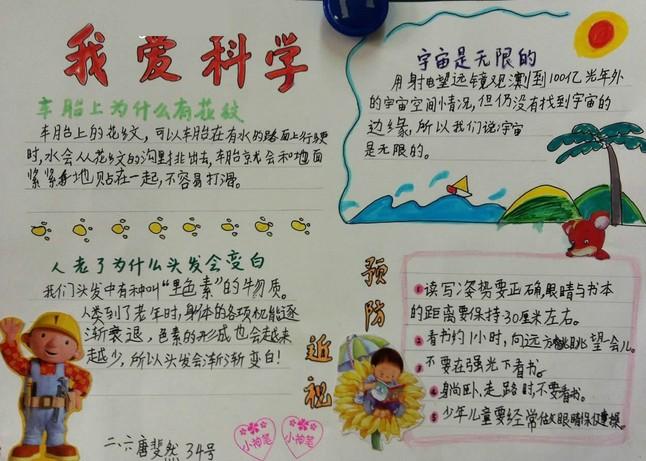 我爱科学
车胎上为什么有花纹
车胎上的花纹，可以车胎在有水的路面上行驶
时，水会从花纹的沟里排出去，车胎就会和地面
紧紧地贴在一起，不容易打滑。
人老了为什么头发会变白
我们头发中有种叫“黑色素”的物质。
人类到了老年时，身体的各项机能逐
渐衰退，色素的形成也会越来
越少，所以头发会渐渐变白！
二、六唐斐然 34号
小神笔
小神笔
宇宙是无限的
用射电望远镜观测到100亿光年外
的宇宙空间情况，但仍没有找到宇宙的
边缘，所以我们说宇宙
是无限的。
预防近视
1 读写姿势要正确，眼睛与书本
的距离要保持30厘米左右。
2 看书约1小时，向远方眺望会儿。
3 不要在强光下看书。
4 躺卧、走路时不要看书。
5 少年儿童要经常做眼睛保健操。